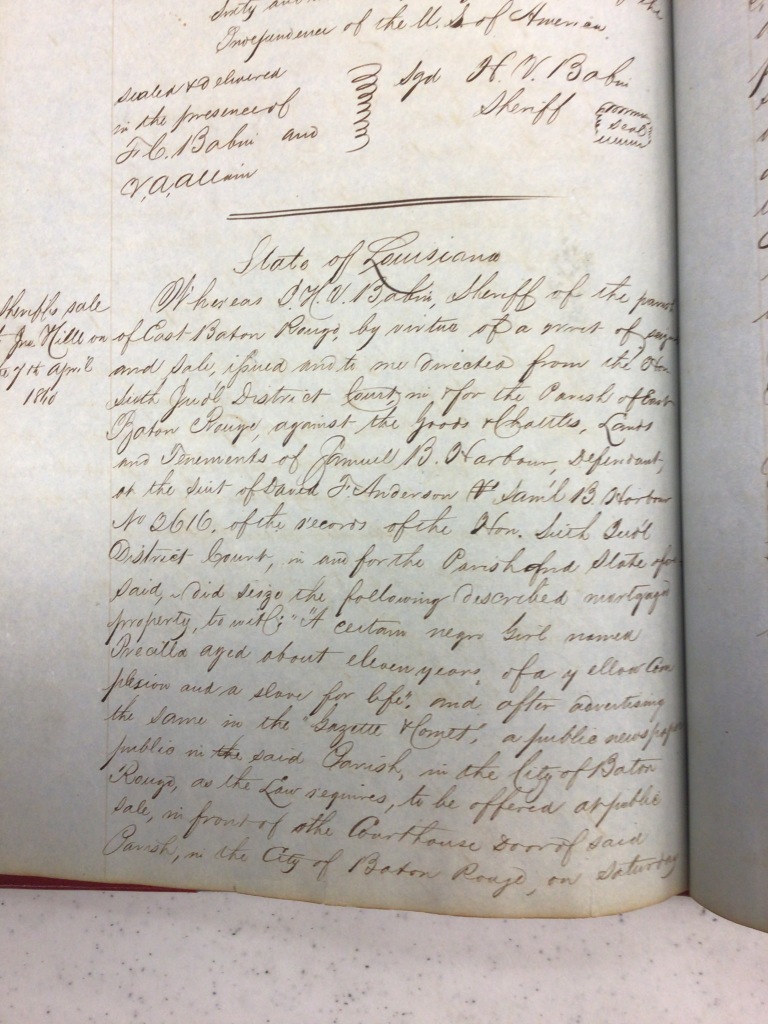 Sixty and of the
Independence of the U.S. of America.
Sealed & delivered
in the presence of
F. C. Babin and
V. A. Allain
Sgd H. V. Babin
Sheriff
Seal
State of Louisiana
Sheriff's sale
Jno. Hill on
7th April
1840
Whereas I. H. V. Babin, Sheriff of the paris
of East Baton Rouge, by virtue of a writ of
and sale, issued and to me directed from the Hon
Sixth Jud'l District Court, in & for the Parish of East
Baton Rouge, against the Goods & Chattles, Lands
and Tenements of Samuel B. Harbour, Defendant,
at the suit of David F. Anderson Vs Sam'l B Harbour
No 2616. of the records of the Hon. Sixth Jud'l
District Court, in and for the Parish and State afor
said, did seize the following described mortgaged
property, to wit: "A certain negro Girl named
aged about eleven years, of a yellow Com
plexion and a slave for life", and after advertising
the same in the "Gazette & Comet", a public newspaper
public in the said Parish, in the City of Baton
Rouge, as the Law requires, to be offered at public
sale, in front of the Courthouse Door of said
Parish, in the City of Baton Rouge, on Saturday